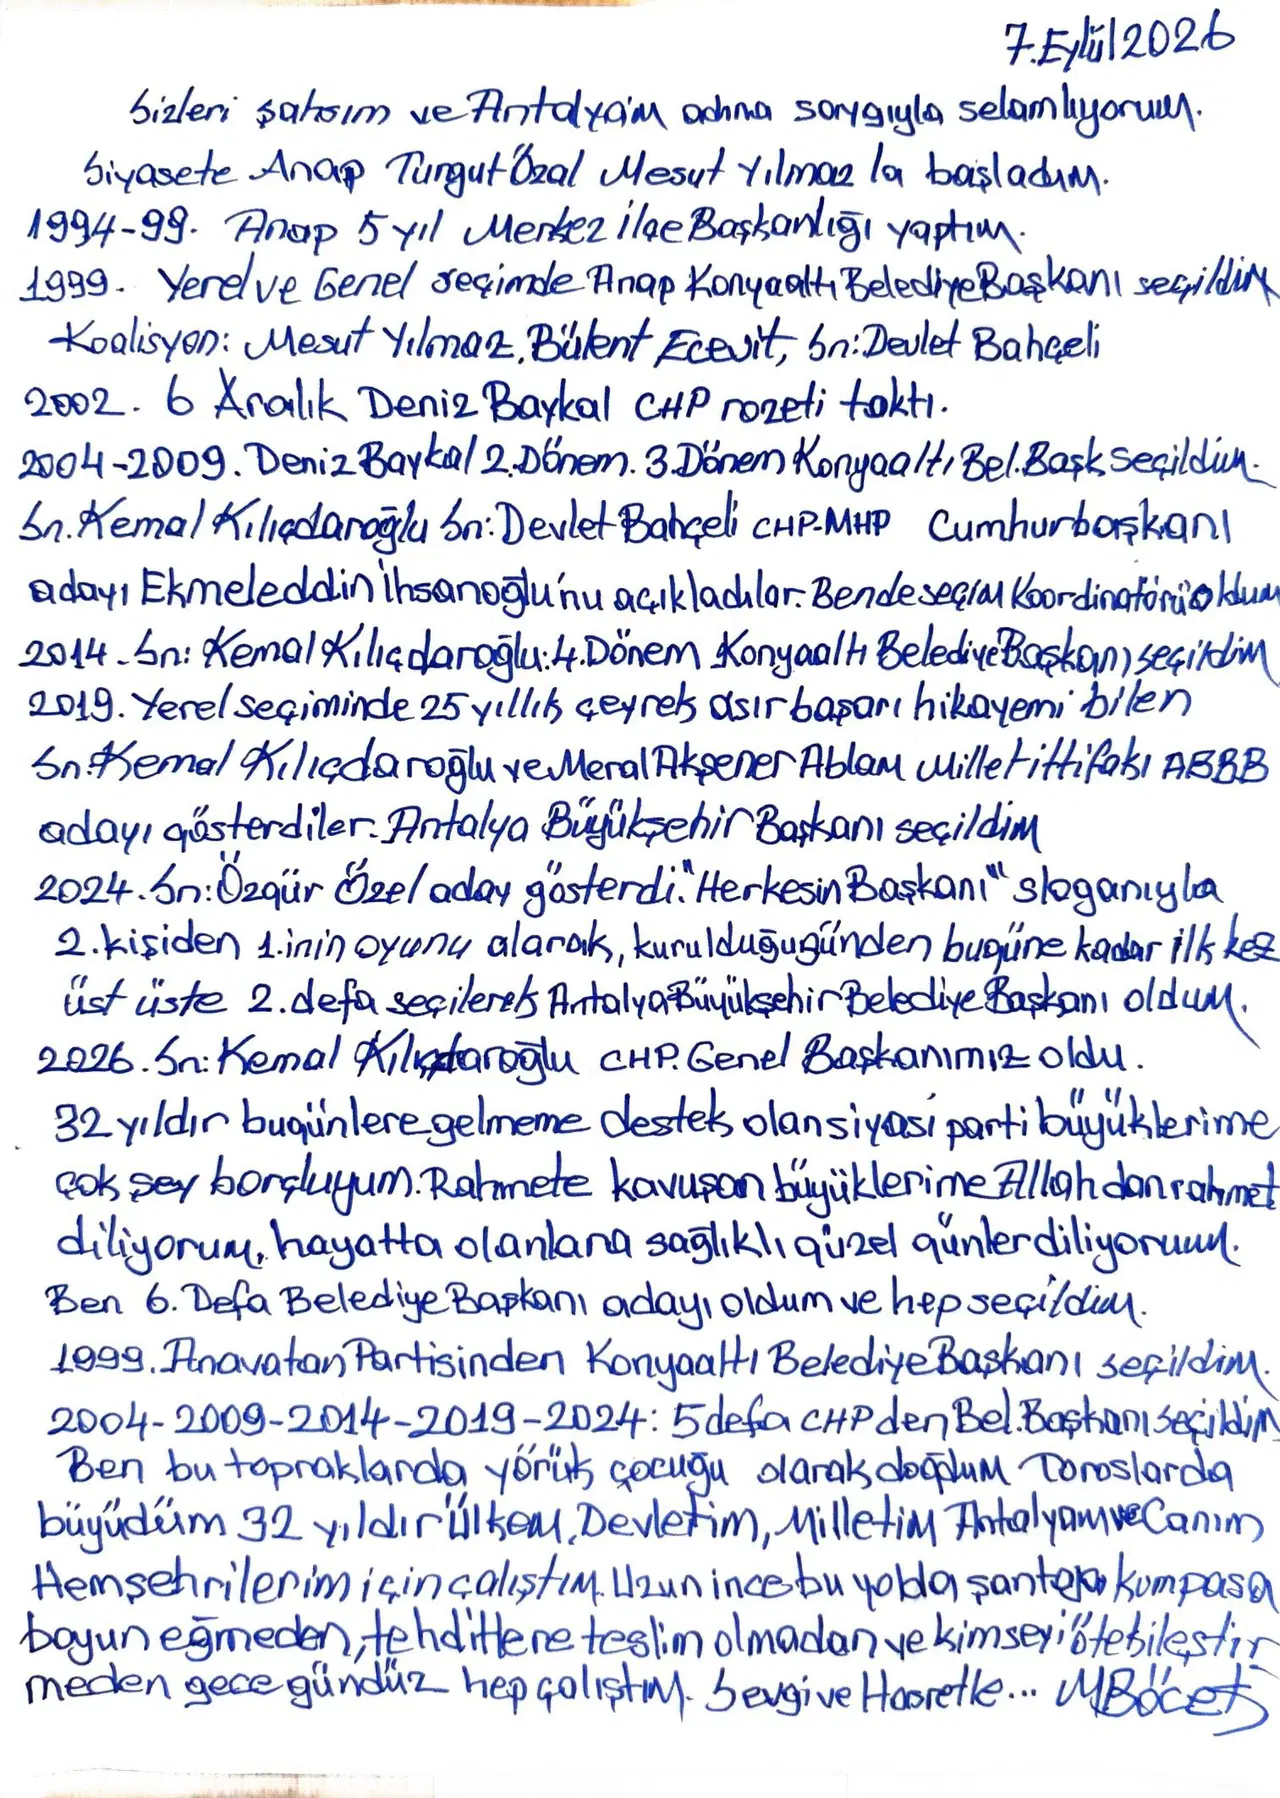 7.Eylül 2026
Sizleri şahsım ve Antalya'm adına saygıyla selamlıyorum.
Siyasete Anap Turgut Özal Mesut Yılmaz la başladım.
1994-99. Anap 5 yıl Merkez İlçe Başkanlığı yaptım.
1999. Yerel ve Genel seçimde Anap Konyaaltı Belediye Başkanı seçildim
Koalisyon: Mesut Yılmaz, Bülent Ecevit, Sn: Devlet Bahçeli
2002. 6 Aralık Deniz Baykal CHP rozeti taktı.
2004-2009. Deniz Baykal 2.Dönem. 3.Dönem Konyaaltı Bel.Başk seçildim.
Sn. Kemal Kılıçdaroğlu Sn: Devlet Bahçeli CHP-MHP Cumhurbaşkanı
adayı Ekmeleddin İhsanoğlu'nu açıkladılar. Bende seçim Koordinatörü oldum
2014. Sn: Kemal Kılıçdaroğlu: 4.Dönem Konyaaltı Belediye Başkanı seçildim
2019. Yerel seçiminde 25 yıllık çeyrek asır başarı hikayemi bilen
Sn. Kemal Kılıçdaroğlu ve Meral Akşener Ablam Millet ittifakı ABBB
adayı gösterdiler. Antalya Büyükşehir Başkanı seçildim
2024. Sn: Özgür Özel aday gösterdi. "Herkesin Başkanı" sloganıyla
2.kişiden 1.inin oyunu alarak, kurulduğugünden bugüne kadar ilk kez
üst üste 2. defa seçilerek Antalya Büyükşehir Belediye Başkanı oldum.
2026. Sn: Kemal Kılıçdaroğlu CHP. Genel Başkanımız oldu.
32 yıldır bugünlere gelmeme destek olan siyasi parti büyüklerime
çok şey borçluyum. Rahmete kavuşan büyüklerime Allah dan rahmet
diliyorum, hayatta olanlara sağlıklı güzel günler diliyorum.
Ben 6. Defa Belediye Başkanı adayı oldum ve hep seçildim.
1999. Anavatan Partisinden Konyaaltı Belediye Başkanı seçildim.
2004-2009-2014-2019-2024: 5 defa CHP den Bel. Başkanı seçildim
Ben bu topraklarda yörük çocuğu olarak doğdum Toroslarda
büyüdüm 32 yıldır Ülkem, Devletim, Milletim Antalyam ve Canım
Hemşehrilerim için çalıştım. Uzun ince bu yolda şantaja kumpasa
boyun eğmeden, tehditlere teslim olmadan ve kimseyi ötekileştir
meden gece gündüz hep çalıştım. Sevgi ve Hasretle... MBöcek